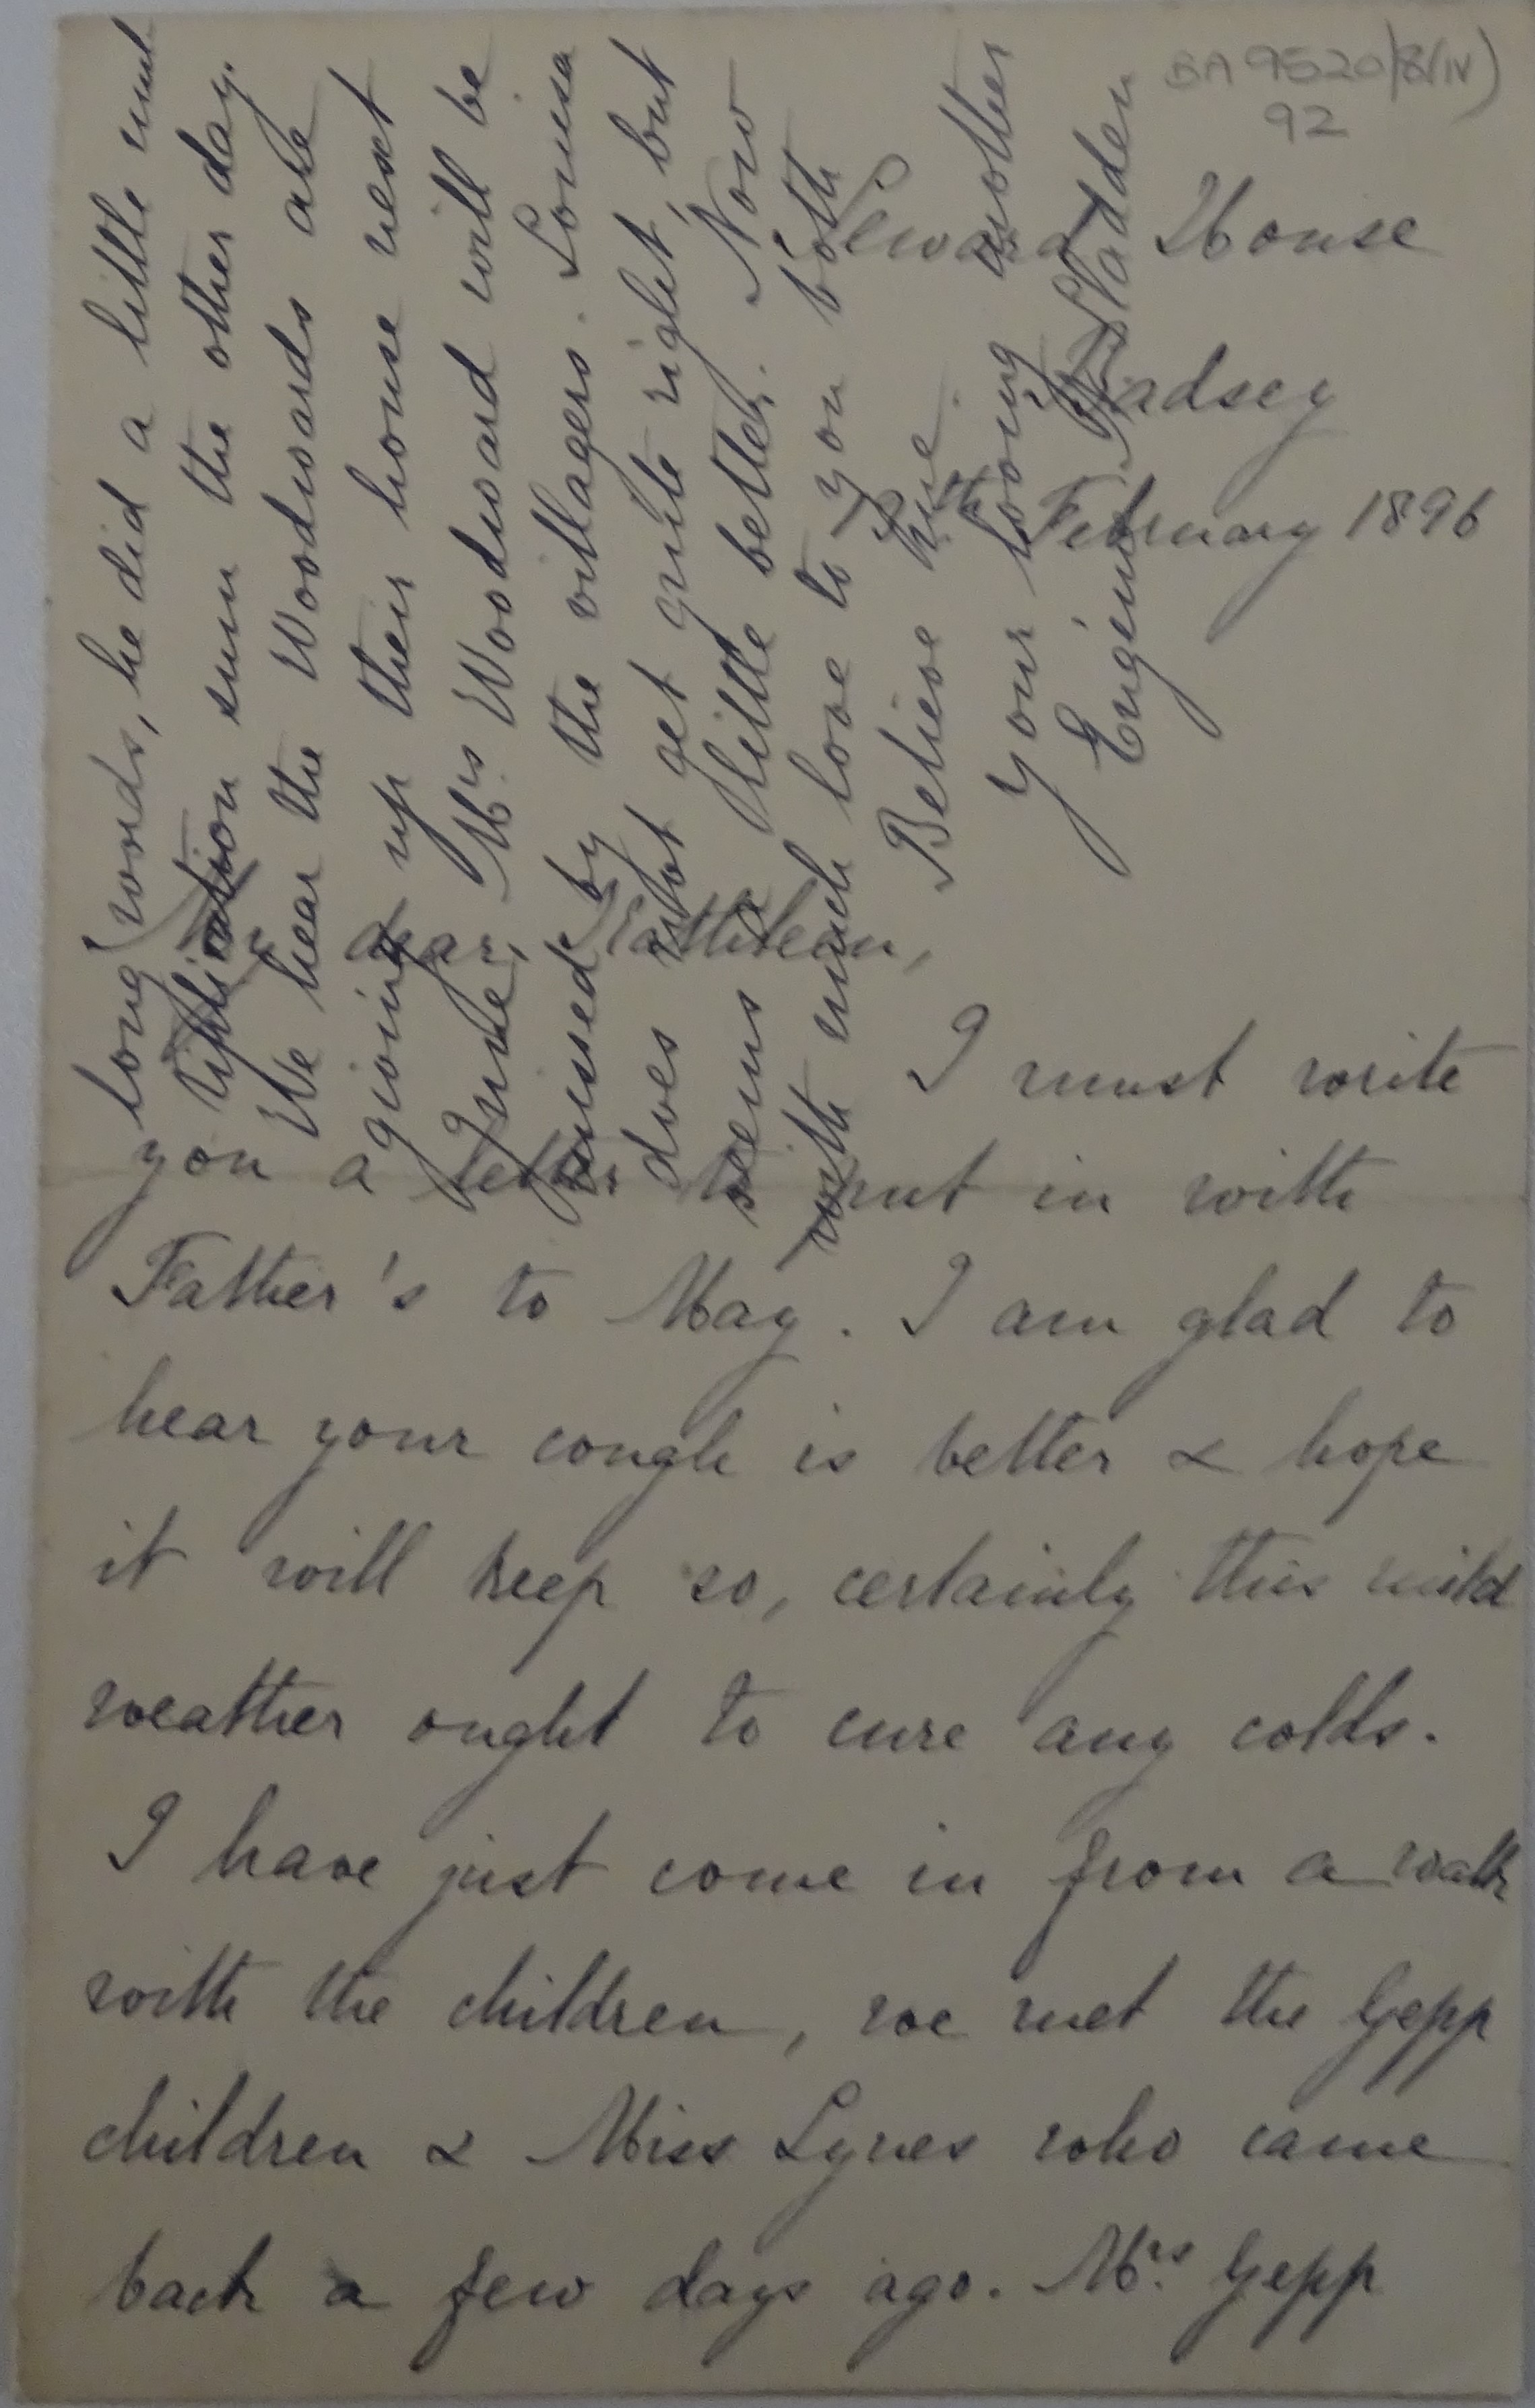 BA 9520/8(iv)
92
Seward House
Badsey
February 1896
My dear Kathleen,
I must write
you a letter to put in with
Father's to May. I am glad to
hear your cough is better & hope
it will keep so, certainly this mild
weather ought to cure any colds.
I have just come in from a walk
with the children, we met the Gepp
children & Miss Lynes who came
back a few days ago. Mrs. Gepp
long words, he did a little mul
tiplication sum the other day.
We hear the Woodwards are
giving up their house next
June. Mrs. Woodward will be
missed by the villagers. Louisa
does not get quite right, but
seems a little better. Now
with much love to you both
Believe me.
Your loving mother
Eugénie Sladden